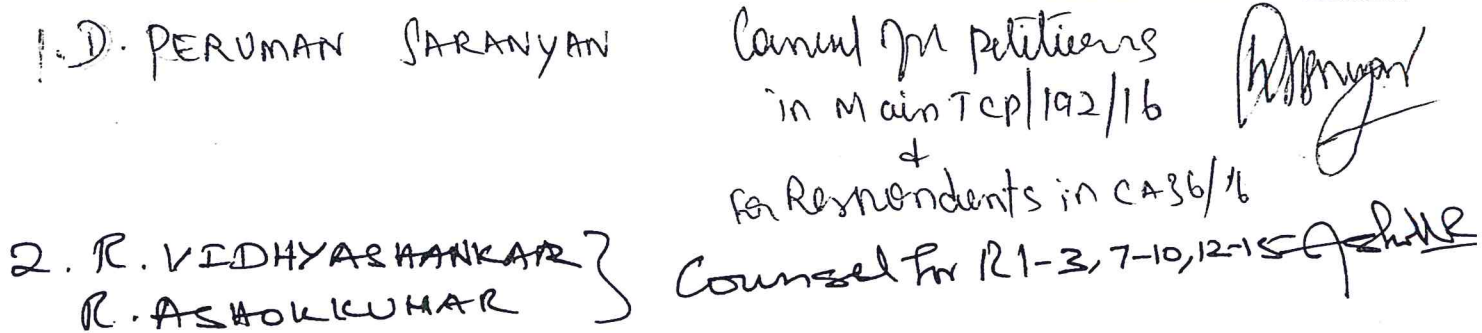 1. D. PERUMAN SARANYAN
Counsel for petitioners
in Main TCP/192/16
&
for Respondents in CA36/16
2. R. VIDHYASHANKAR }
R. ASHOKKUMAR
Counsel for R1-3, 7-10, 12-15